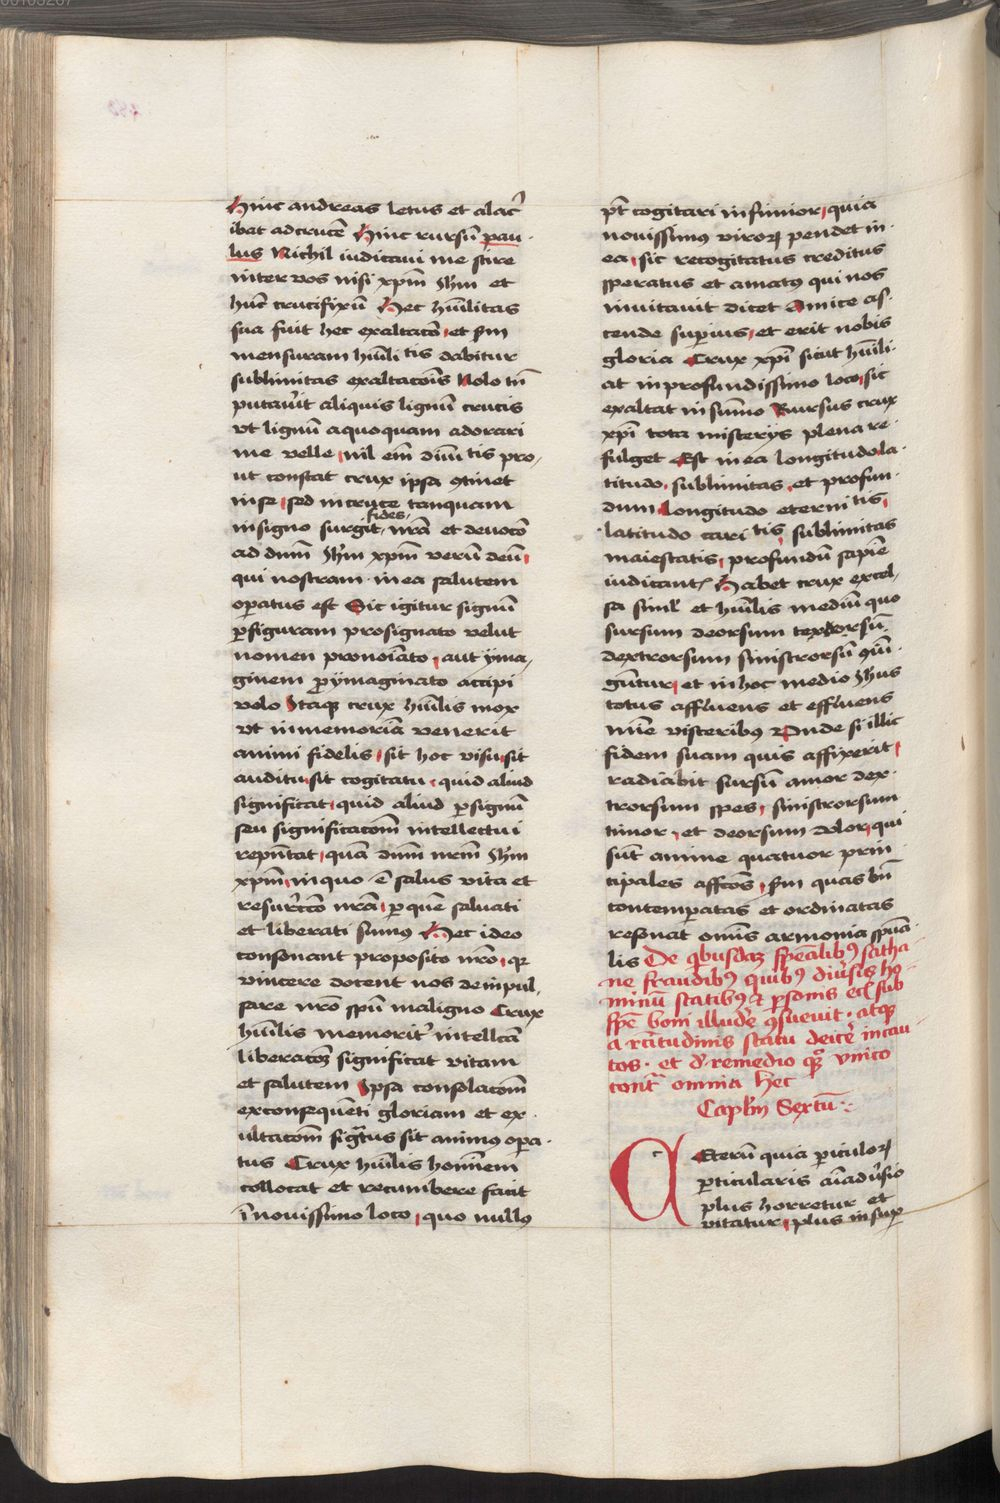 Hinc andreas letus et alacr̄
ibat ad crucē Hinc rursū pau
lus Nichil iudicaui me scire
inter vos nisi xp̄m Ihm̄ et
hūc crucifixū Hec hūilitas
sua fuit hec exaltatō et scdm
mensuram hūili tis dabitur
sublimitas exaltacōis Nolo tn̄
putau̇it aliquis lignū crucis
vt lignū a quoquam adorari
me velle nil em̄ diuī tis pro
ut constat crux ipsa ↄtinet
in se sed in cruce tanquam
in signo surgit fides nrā et deuocō
ad dnm̄ Ihm̄ xp̄m verū deū
qui nostram in ea salutem
operatus est Sic igitur signū
per figuram pro signato velut
nomen pro noīato aut yma
ginem pro ymaginato accipi
volo Itaq3 crux hūilis mox
vt in memoriā venerit
animi fidelis sit hoc visu sit
auditu sit cogitatu quid aliud
significat quid aliud per signū
seu significacōm intellectui
repn̄tat quā dnm̄ nrm̄ Ihm̄
xp̄m in quo ē salus vita et
resurccō nrā per quē saluati
et liberati sumus Hec ideo
consonant proposito nrō q2
vincere docent nos de inpul
sare nrō spū maligno Crux
hūilis memorit̄ intellcā
liberatōe3 significat vitam
et salutem Ipsa consolacōm
ex consequēti gloriam et ex
ultacōm sigtus sit animus opera
tus Crux hūilis hominem
collocat et recumbere facit
ī nouissimo loco quo nullus
pt̄ cogitari infimior quia
nouissimus viror̄ pendet in
ea sic recogitatus creditus
speratus et amatus qui nos
inuitauit dicet Amice as
cende superius et erit nobis
gloria Crux xp̄i sicut hūili
at in profundissimo loco sic
exaltat in sūmo Rursus crux
xp̄i tota misterijs plena re
fulget Est in ea longitudo la
titudo sublimitas et profun
dum Longitudo eterni tis
latitudo cari tis sublimitas
maiestatis profundū sapiē
iudicantr̄ Habet crux excel
sa simil̄ et hūilis mediū quo
sursum deorsum dextrorsū
dextrorsum sinistrorsū ↄiū
gūtur et in hoc medio Ihus
totus affluens et effluens
mīe visceribus Unde si illic
fidem suam quis affixerit
radiābit sursū amor dex
trorsum spes sinistrorsum
timor et deorsum dolor qui
sūt anime quatuor prin
cipales affcōs scdm quas bn̄
contemperatas et ordinatas
resonat omīs armonia spūa
lis De qbusda3 spēalibus satha
ne fraudibus quibus diu̇sis ho
minū statibus et p̄sonis etc̄ sub
spē boni illudē ↄsueuit atq3
a rc̄itudinis statu deicē incau
tos et de remedio q̄ vnico
contra omnia hec
Caplm̄ Sextū
Ceterū quia periculor̄
perticularis aīaduersio
plus horretur et
vitatur plus insuper